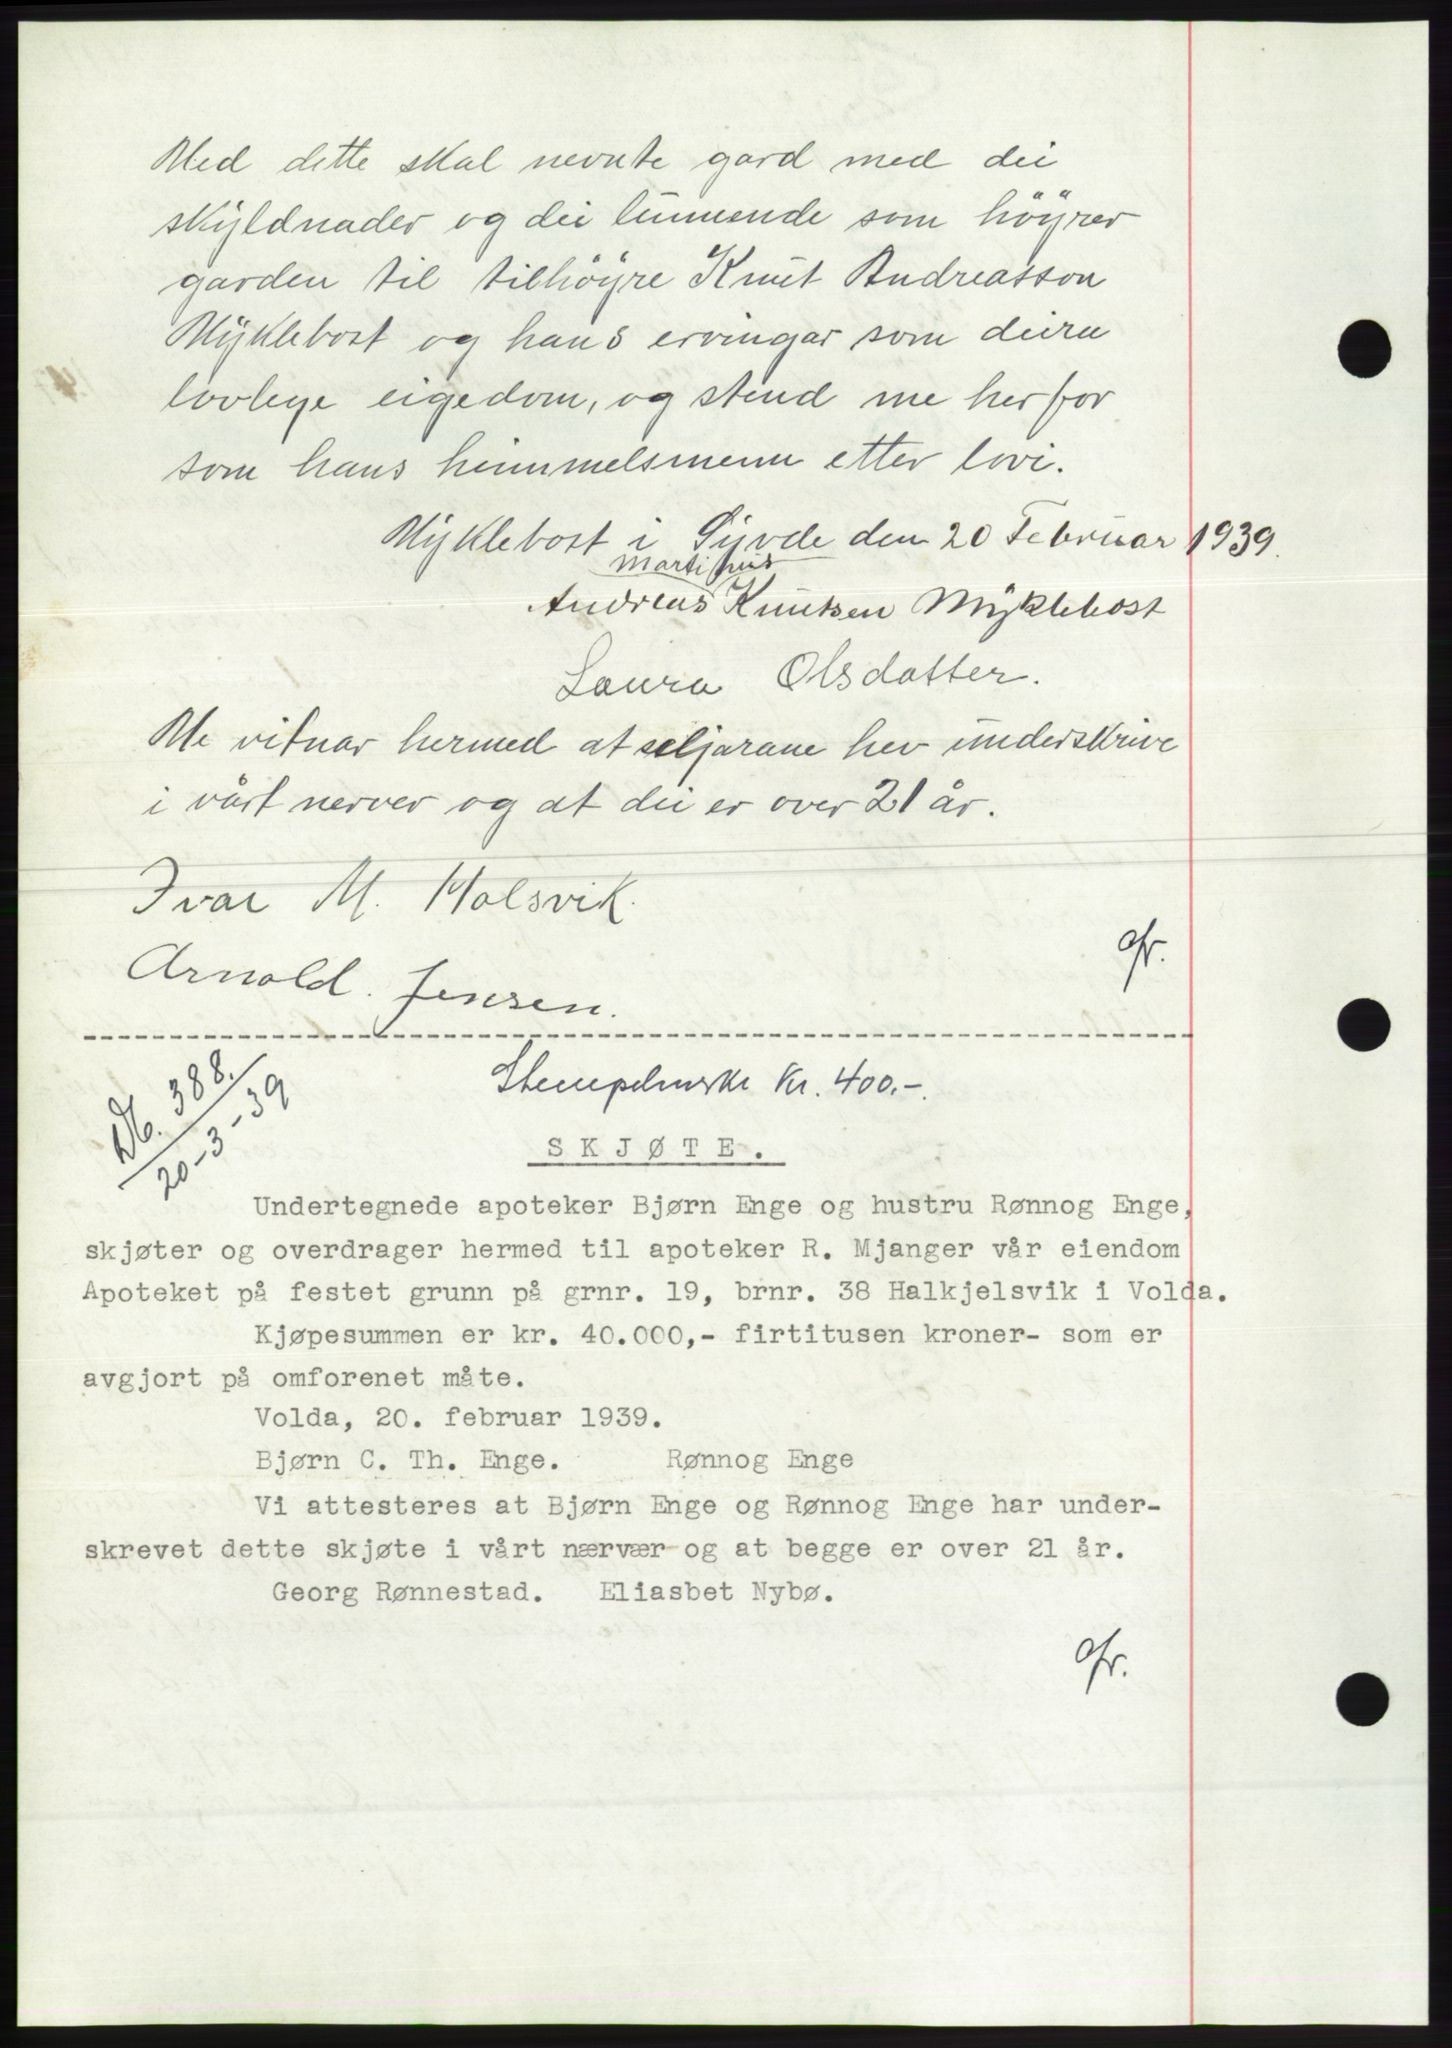 Med dette skal nevnte gard med dei
skyldnader og dei lunnende som höyrer
garden til tilhöyre Knut Andreasson
Myklebost og hans ervingar som deira
lovlege eigedom, og stend me her for
som hans heimmelsmenn etter lovi.
Myklebost i Syvde den 20 Februar 1939.
Martinus
Andreas Knutsen Myklebost
Laura Olsdatter.
Me vitnar hermed at seljarane hev underskrive
i vårt nerver og at dei er over 21 år.
Ivar M. Holsvik.
Arnold. Jensen.
Db. 388.
20-3-39
Stempelmerke kr. 400.-.
SKJØTE.
Undertegnede apoteker Bjørn Enge og hustru Rønnog Enge,
skjøter og overdrager hermed til apoteker R. Mjanger vår eiendom
Apoteket på festet grunn på grnr. 19, brnr. 38 Halkjelsvik i Volda.
Kjøpesummen er kr. 40.000,- firtitusen kroner- som er
avgjort på omforenet måte.
Volda, 20. februar 1939.
Bjørn C. Th. Enge. Rønnog Enge
Vi attesteres at Bjørn Enge og Rønnog Enge har under-
skrevet dette skjøte i vårt nærvær og at begge er over 21 år.
Georg Rønnestad. Eliasbet Nybø.